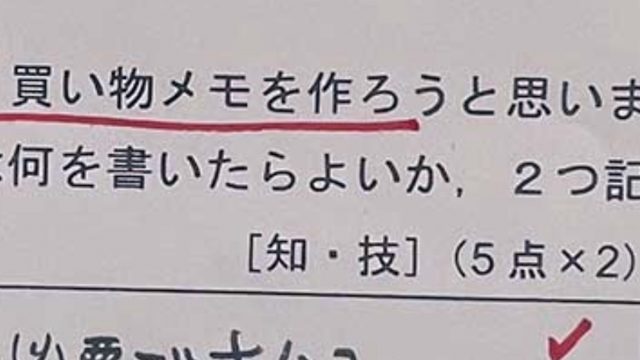 買い物メモを作ろうと思いま
何を書いたらよいか，２つ記
［知・技］（5点×2）